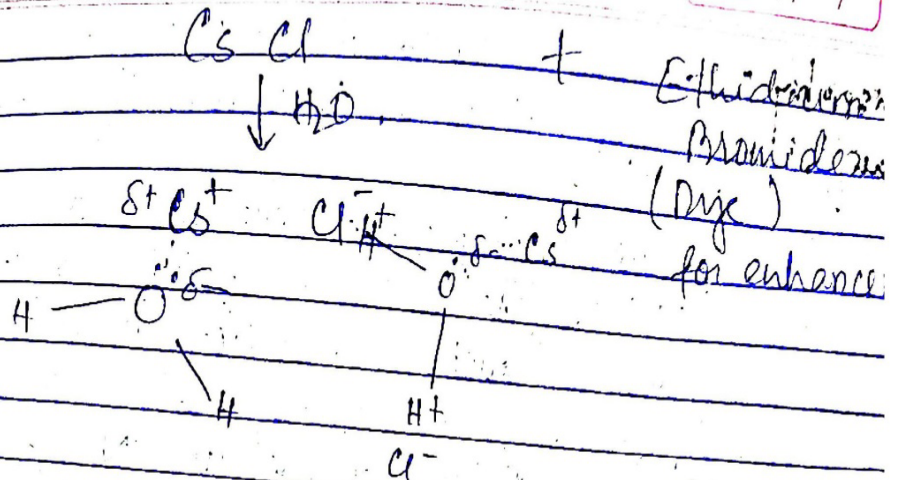 Cs Cl + Ethidium
↓ H2O Bromide
(Dye)
for enhance
δ+ Cs+ Cl- H+ δ- Cs δ+
H O δ- O
H H+
Cl-